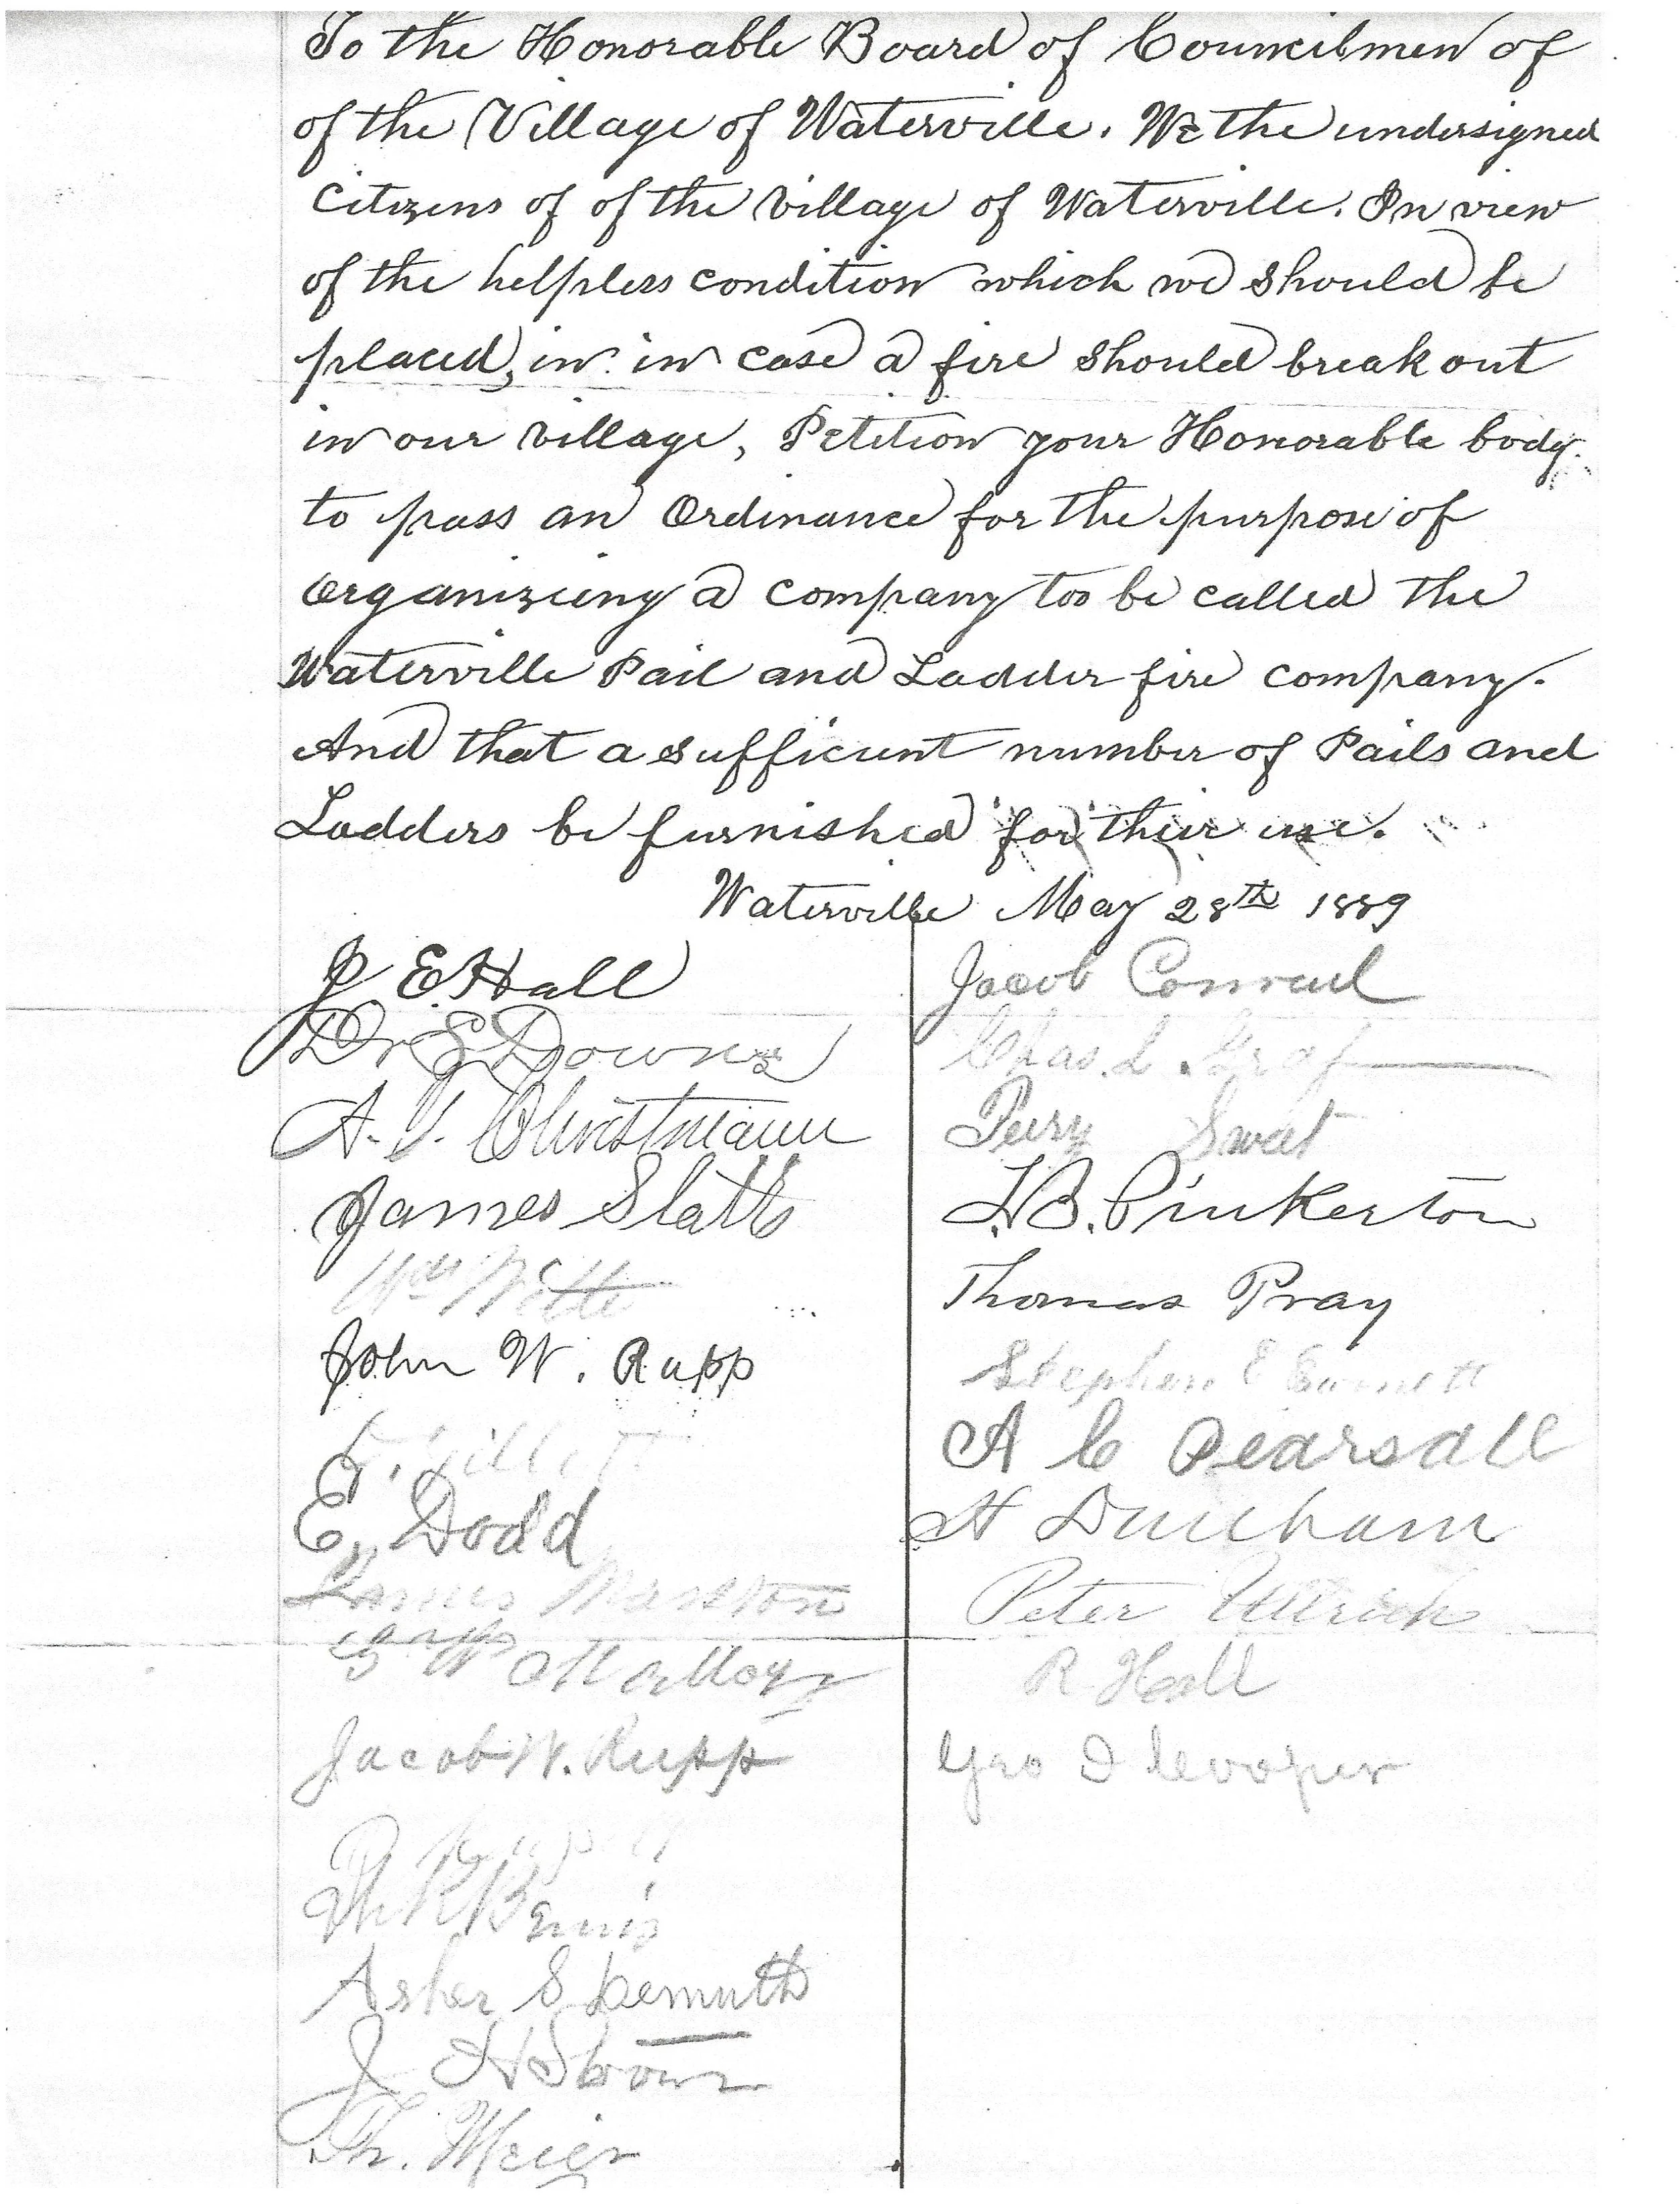 To the Honorable Board of Councilmen of
of the Village of Waterville. We the undersigned
Citizens of of the Village of Waterville. In view
of the helpless condition which we should be
placed, in in case a fire should break out
in our Village, Petition your Honorable body
to pass an Ordinance for the purpose of
Organizieng a company too be called the
Waterville Pail and Ladder fire company.
And that a sufficient number of Pails and
Ladders be furnished for their use.
Waterville May 28th 1889
J E Hall
Dr E Downs
A. V. Christmann
James Slatts
Wm Witte
John W. Rupp
E. Dodd
Jacob W. Rupp
Asher S Demuth
Th. Meier
Jacob Conrad
Chas. L Graf
Perry Sweet
Pinkerton
Thomas Pray
Stephen E
A C Pearsall
H Dunham
Peter Ullrich
R Hall
Geo D Cooper